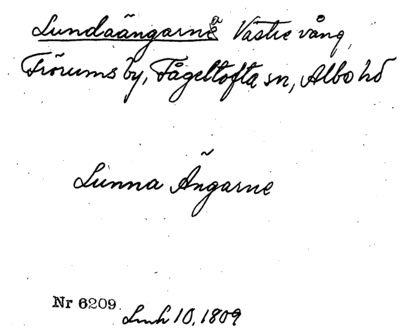 Lundaängarna Västre vång,
Frörums by, Fågeltofta sn, Albo hd
Lunna Ängarne
Nr 6209. Lmh 10, 1809